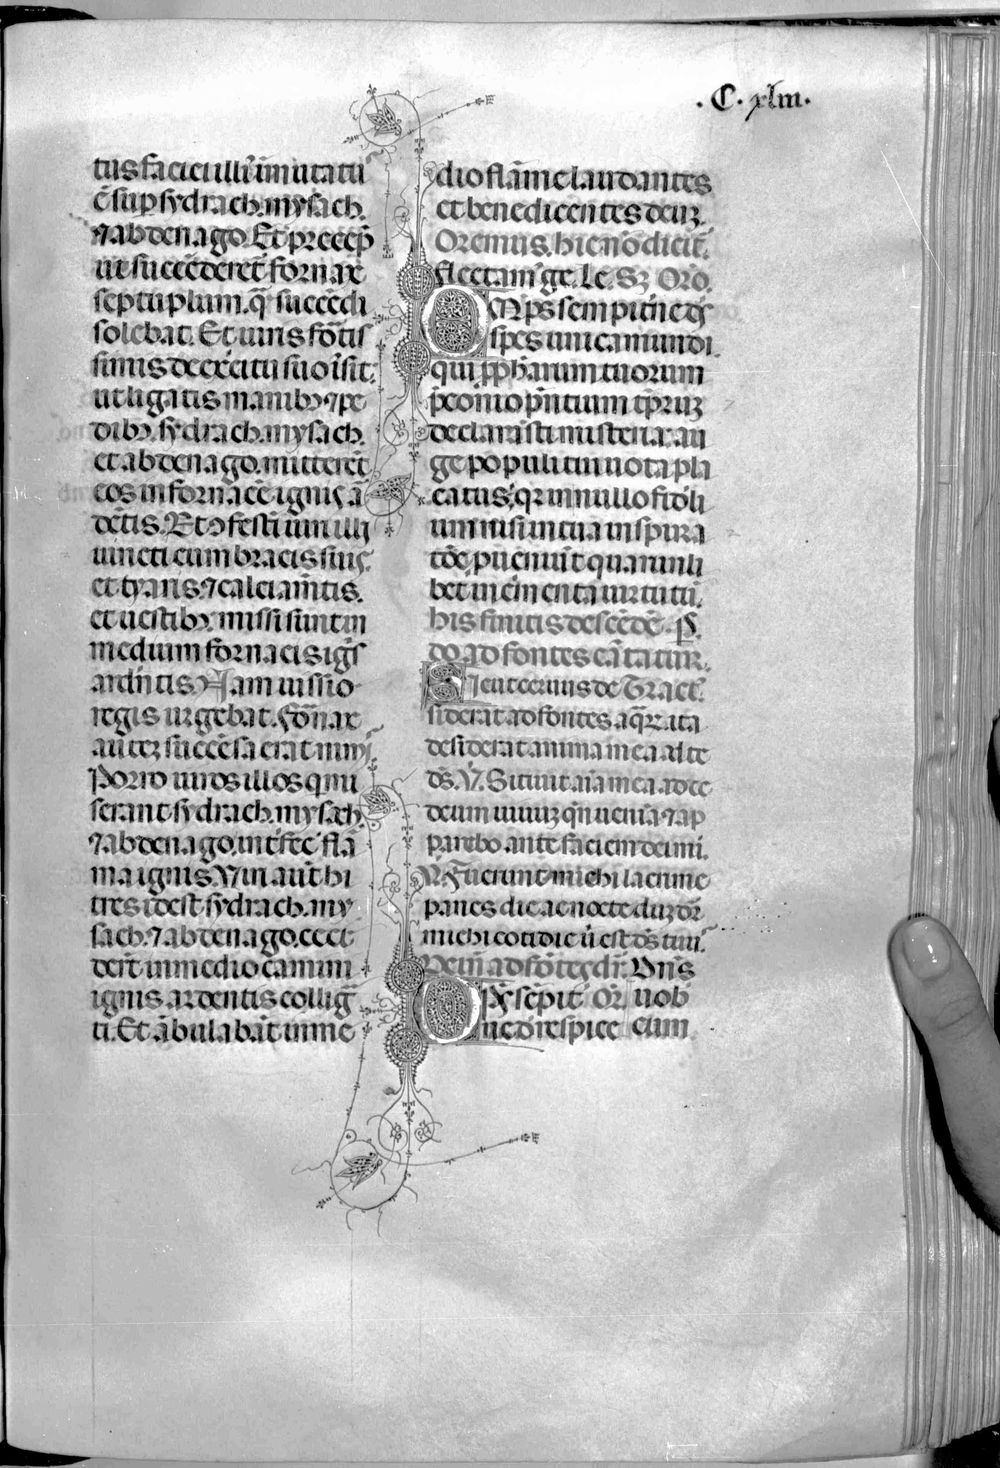 .C. xlııı.
tus faciei illiꝰ ı̄mutatu
ē suꝑ sydrach. mysach.
⁊ abdenago. Et precep̄
ut succēderet̄ fornax
septuplum. q̄ succēdi
solebat. Et uiris fortis
simis de exercitu suo iusit:
ut ligatis manibꝫ ⁊ pe
dibꝫ. sydrach. mysach.
et abdenago. mitterēt
eos in fornacē ignis ar
dētis. Et ꝯfestī uiri illi
uincti cum bracis suis.
et tyaris ⁊ calciam̄tis.
et uestibꝫ missi sunt in
medium fornacis ignis
ardētis. Nam iussio
regis urgebat. Fornax
autez succēsa erat nimis
Porro uiros illos q̇ mi
serant sydrach. mysach
⁊ abdenago. interfecꝰ flā
ma ignis. Viri aūt hi
tres idest sydrach. my
sach. ⁊ abdenago. ceci
derūt in medio camini
ignis ardentis colliga
ti. Et ābulabāt in me
dio flāme laudantes
et benedicentes deuꝫ.
Oremus. hic nō dicit̄.
flectamꝰ ge. Le. Sꝫ Oro.
Omps sempiterne ds̄
spes unica mundi
qui ꝓphetarum tuorum
p̄conio p̄ntium tp̄ruꝫ
declarasti misteria: au
ge populi tui uota pla
catus: qꝛ in nullo fideli
um nisi ex tua inspira
tōe, pueniūt quarumli
bet incremēta uirtutū.
his finitis descēdēdo
do ad fontes cātatur.
Sicut ceruus de Tract.
siderat ad fontes aqꝛ: ita
desiderat anima mea ad te
ds̄. V̄. Sitiuit aīa mea ad te
deum uiuuꝫ qn̄ ueniā ⁊ ap
parebo. ante faciem dei mei.
V̄. Fuerunt michi lacrime
panes die ac nocte duꝫ dr̄
michi cotidie u est ds̄ tuus.
Dein̄ ad fōtes dr̄. Dn̄s
Omps sēpit̄ Or̄. uob
ne ds̄ respice cum